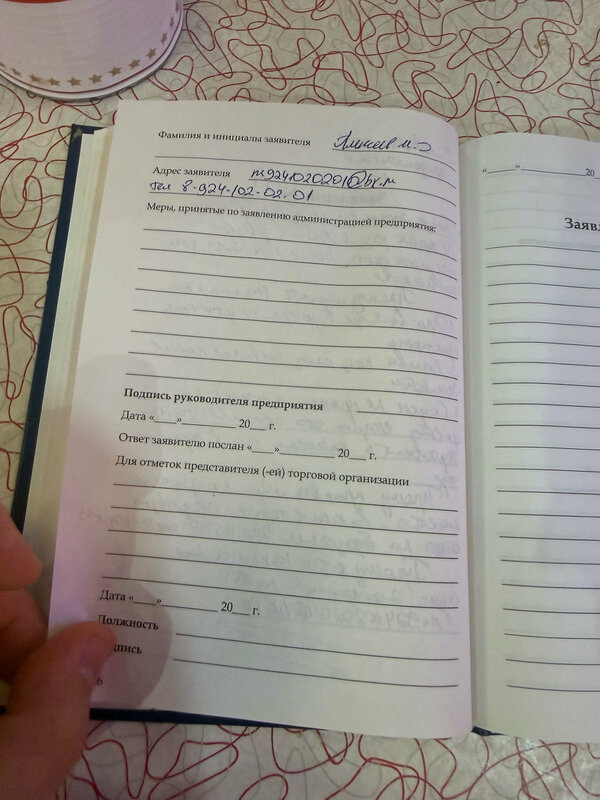 Фамилия и инициалы заявителя
Адрес заявителя m9241020201@bk.ru
тел 8-924-102-02-01
Меры, принятые по заявлению администрацией предприятия:
Подпись руководителя предприятия
Дата «___»__________ 20___ г.
Ответ заявителю послан «____»__________ 20___ г.
Для отметок представителя (-ей) торговой организации
Дата «___»__________ 20___ г.
Должность
пись
«____»__________ 20
Заявл